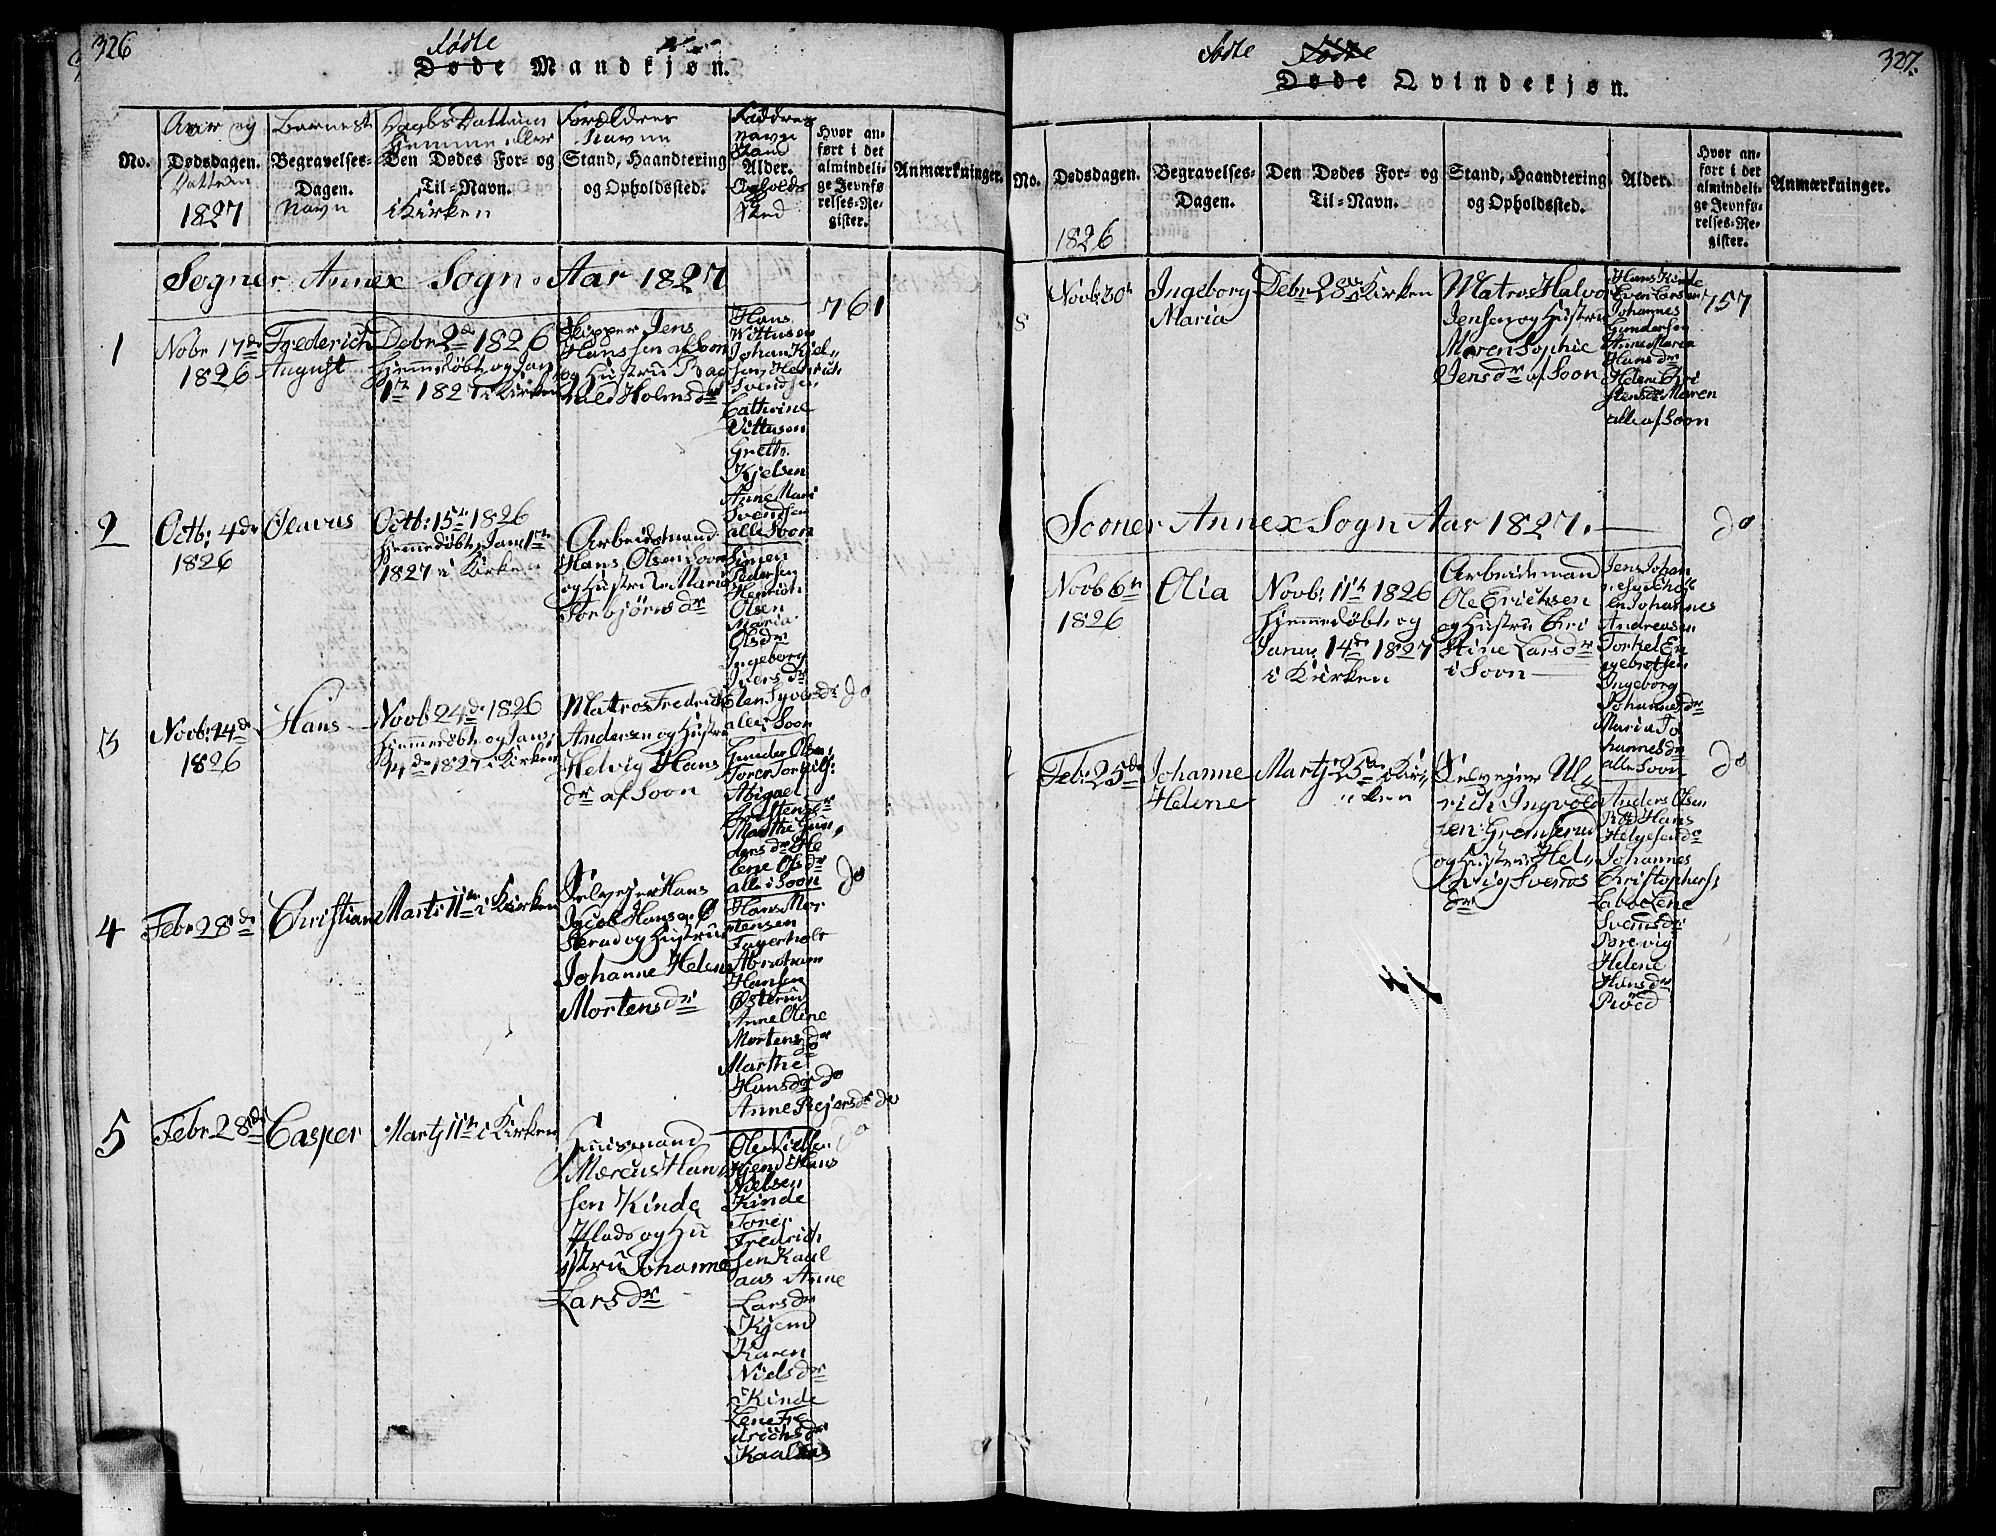 326
Fødte
Døde Mandkjøn.
No.
Aar og
Dødsdagen.
Dattum
1827
Barnest
Begravelses-
Dagen.
Navn
Daabs Dattum
Hjemme eller
Den Dødes For- og
Til-Navn.
i Kirken
Forældres
Navne
Stand, Haandtering
og Opholdssted.
Faddres
Navn
Stand
Alder.
Opholds
Sted
Hvor an-
ført i det
almindeli-
ge Jevnfø
relses-Re-
gister.
Anmærkninger.
Sogner Annex Sogn Aar 1827
761
1
Nobr 17de
1826
Frederich
August
Debr 2de 1826
Hjemmedøbt, og Jan
1te 1827 i Kirken
Skipper Jens
Hanssen af Soon
og Hustru Rag
nild Holmsdr
Hans
Wittusen
Johan Kjel-
sen Henrich
Svendsen
Cathrine
Vittusen
Grethe
Kjelsen
Anne Mari
Svendsen
alle Soon
2
Octb: 4de
1826
Olavus
Octb: 15de 1826
Hjemmedøbt, Jan 1te
1827 i Kirken
Arbeidsmand
Hans Olsen Soon
og Hustru Maria
Torbjørnsdr
Simen
Pedersen
Henrich
Olsen
Maria
Olsdr
Ingeborg
Iversdr
Olen Syversdr
alle i Soon
3
Novb: 14de
1826
Hans
Novb: 24de 1826
Hjemmedøbt og Jan:
14de 1827 i Kirken
Matros Fredrich
Andersen og Hustru
Helvig Hans
dr af Soon
do
Gunder Olsen
Abigael
Marthe Gun
dersdr He
lene Olsdr
alle i Soon
4
Febr 28de
Christian
Marti 11te i Kirken
Selveyer Hans
Jacob Hansen Ø
sterud og Hustrue
Johanne Helene
Mortensdr
do
Hans Mor
tensen
Fagerholt
Abraham
Hansen
Østerud
Anne Oline
Mortensdr
do
Marthe
Hansdr do
Anne Rejersdr do
5
Febr 28de
Casper
Martj 11te i Kirken
Huusmand
Marcus Han
sen Kinde
Plads og Hu
stru Johanne
Larsdr
do
Kjend Hans
Nielsen
Kinde
Fredrich
sen Kaal
aas Anne
Larsdr
Kjend
Karen
Nielsdr
Kinde
Lene Fre
drichsdr
Kaalaas
327.
Fødte Fødte
Døde Qvindekjøn.
No.
Dødsdagen.
1826
Begravelses-
Dagen.
Den Dødes For- og
Til-Navn.
Stand, Haandtering
og Opholdssted.
Alder.
Hvor an-
ført i det
almindeli-
ge Jevnfø-
relses-Re-
gister.
Anmærkninger.
8
Novb: 30te
Ingeborg
Maria
Debr 28de i Kirken
Matros Halvor
Jensen og Hustru
Maren Sophie
Jensdr af Soon
Hans Kinde
Even Larsen
Johannes
Gundersen
Anne Maria
Hansdr
Helene Chri
stensdr Maren
alle af Soon
757
Sooner Annex Sogn Aar 1827.
do
Novb 6te
1826
Olia
Novb: 11te 1826
Hjemmedøbt, og
Janu: 14de 1827
i Kirken
Arbeidsmand
Ole Erichsen
og Hustru Chri
stine Larsdr
i Soon
Jens Johan
Johannes
Andreasen
Torkel En
gebretsen
Ingeborg
Johannesdr
Maria Jo
hannesdr
alle Soon
Feb: 25de
Johanne
Helene
Martj 25de i Kir-
ken
Selveyer Ul-
rich Ingvold
sen Gremserud
og Hustru Hel-
vig Svends
dr
do
Anders Olsen
Hans
Helgesen
Johannes
Christophers:
Labo Lene
Svendsdr
Brevig
Helene
Hansdr
Røed